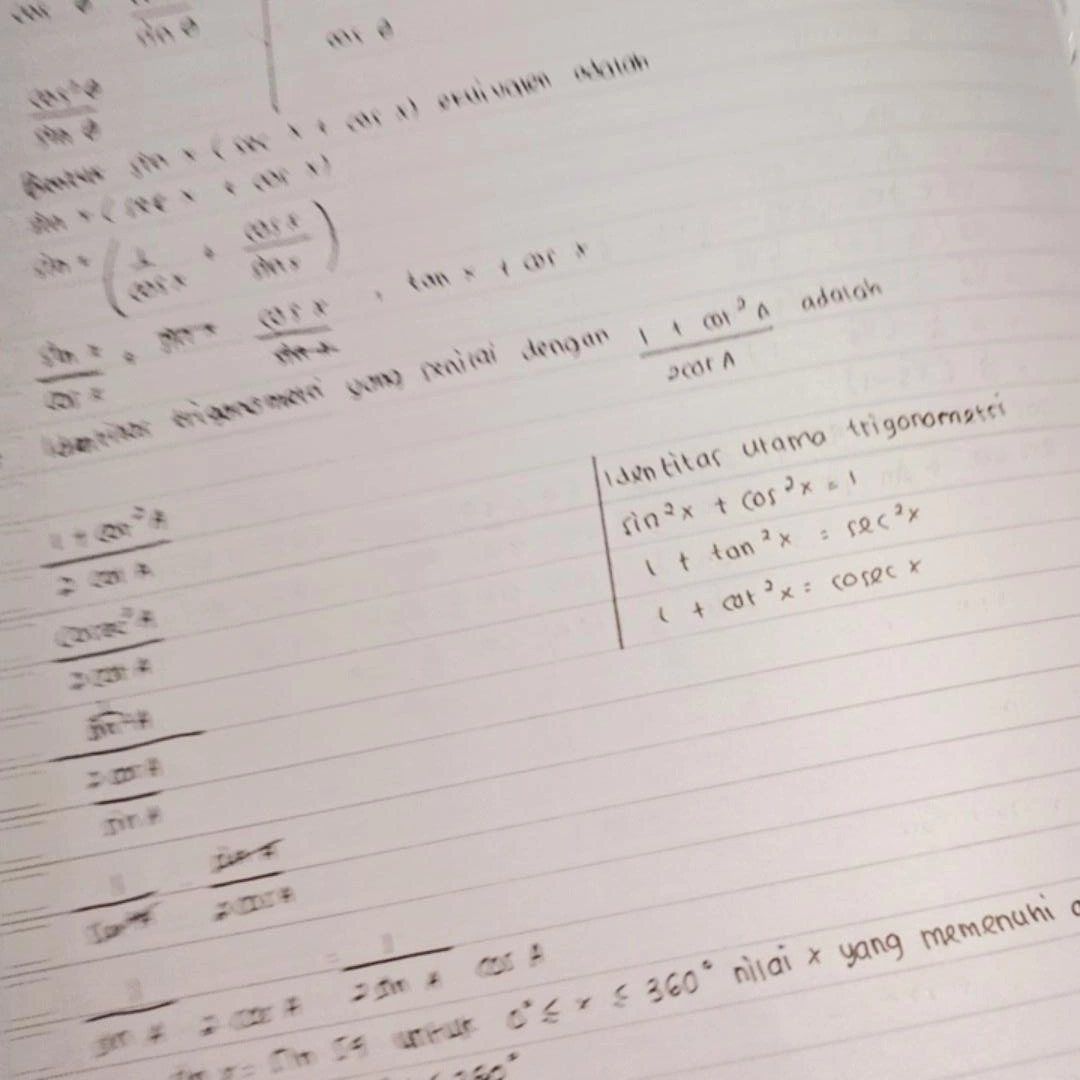 sin θ
cos θ
cos² θ
sin θ
sin x (sec x + cot x) ekuivalen adalah
sin x (sec x + cot x)
sin x (1/cos x + cos x/sin x)
sin x/cos x + sin x cos x/sin x = tan x + cos x
Identitas trigonometri yang senilai dengan 1 + cot² A / 2 cot A adalah
1 + cot² A
2 cot A
cosec² A
2 cot A
Identitas utama trigonometri
sin²x + cos²x = 1
1 + tan²x = sec²x
1 + cot²x = cosec x
2 cos A
sin A
sin A
2 cos A
1
sin A 2 cos A
= 1 / 2 sin A cos A
sin 54 untuk 0° ≤ x ≤ 360° nilai x yang memenuhi
360°